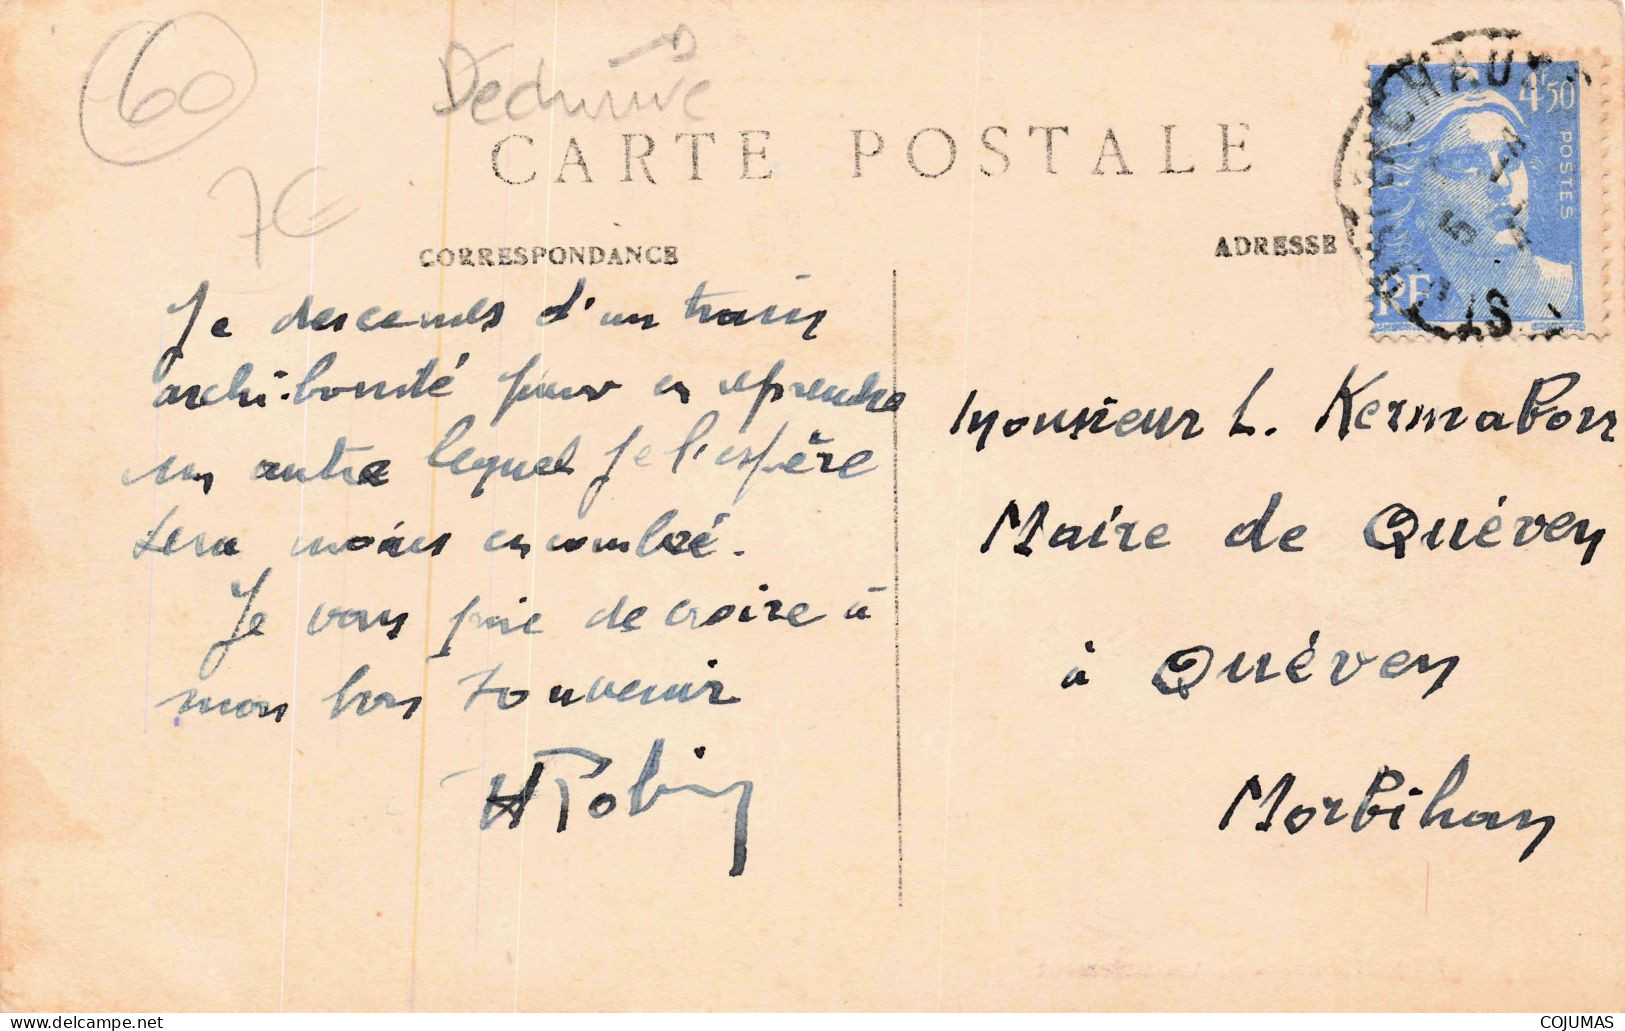 60
7€
CARTE POSTALE
CORRESPONDANCE
ADRESSE
4F50
POSTES
RF
Je descends d'un train
archi-bondé pour en reprendre
un autre lequel je l'espère
sera moins encombré.
Je vous prie de croire à
mon bon souvenir
H Robin
Monsieur L. Kermabon
Maire de Quéven
à Quéven
Morbihan
COJUMAS